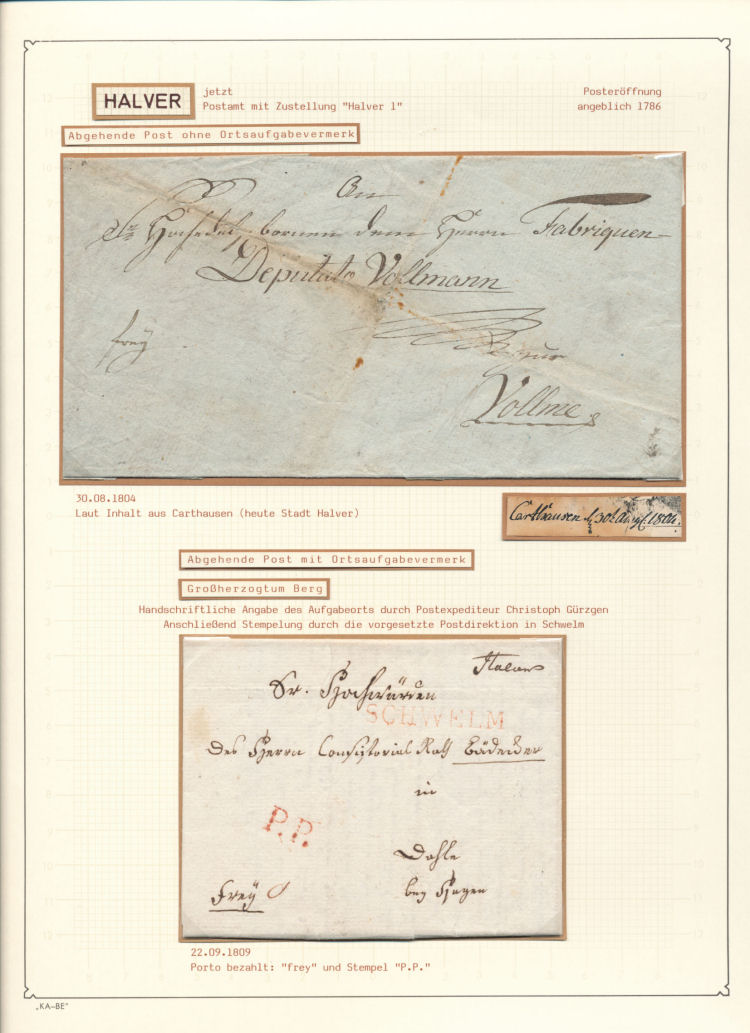 HALVER
jetzt
Postamt mit Zustellung "Halver 1"
Posteröffnung
angeblich 1786
Abgehende Post ohne Ortsaufgabevermerk
An
Sr Hochedelgebornen dem Herrn Fabriquen-
Deputato Vollmann
frey
zur
Vollme
30.08.1804
Laut Inhalt aus Carthausen (heute Stadt Halver)
Carthausen d 30t Augst 1804.
Abgehende Post mit Ortsaufgabevermerk
Großherzogtum Berg
Handschriftliche Angabe des Aufgabeorts durch Postexpediteur Christoph Gürzgen
Anschließend Stempelung durch die vorgesetzte Postdirektion in Schwelm
Halver
Sr. Hochwürden
SCHWELM
des Herrn Consistorial Rath Bädeker
in
P.P.
Dahle
bey Hagen
Frey
22.09.1809
Porto bezahlt: "frey" und Stempel "P.P."
„KA–BE"